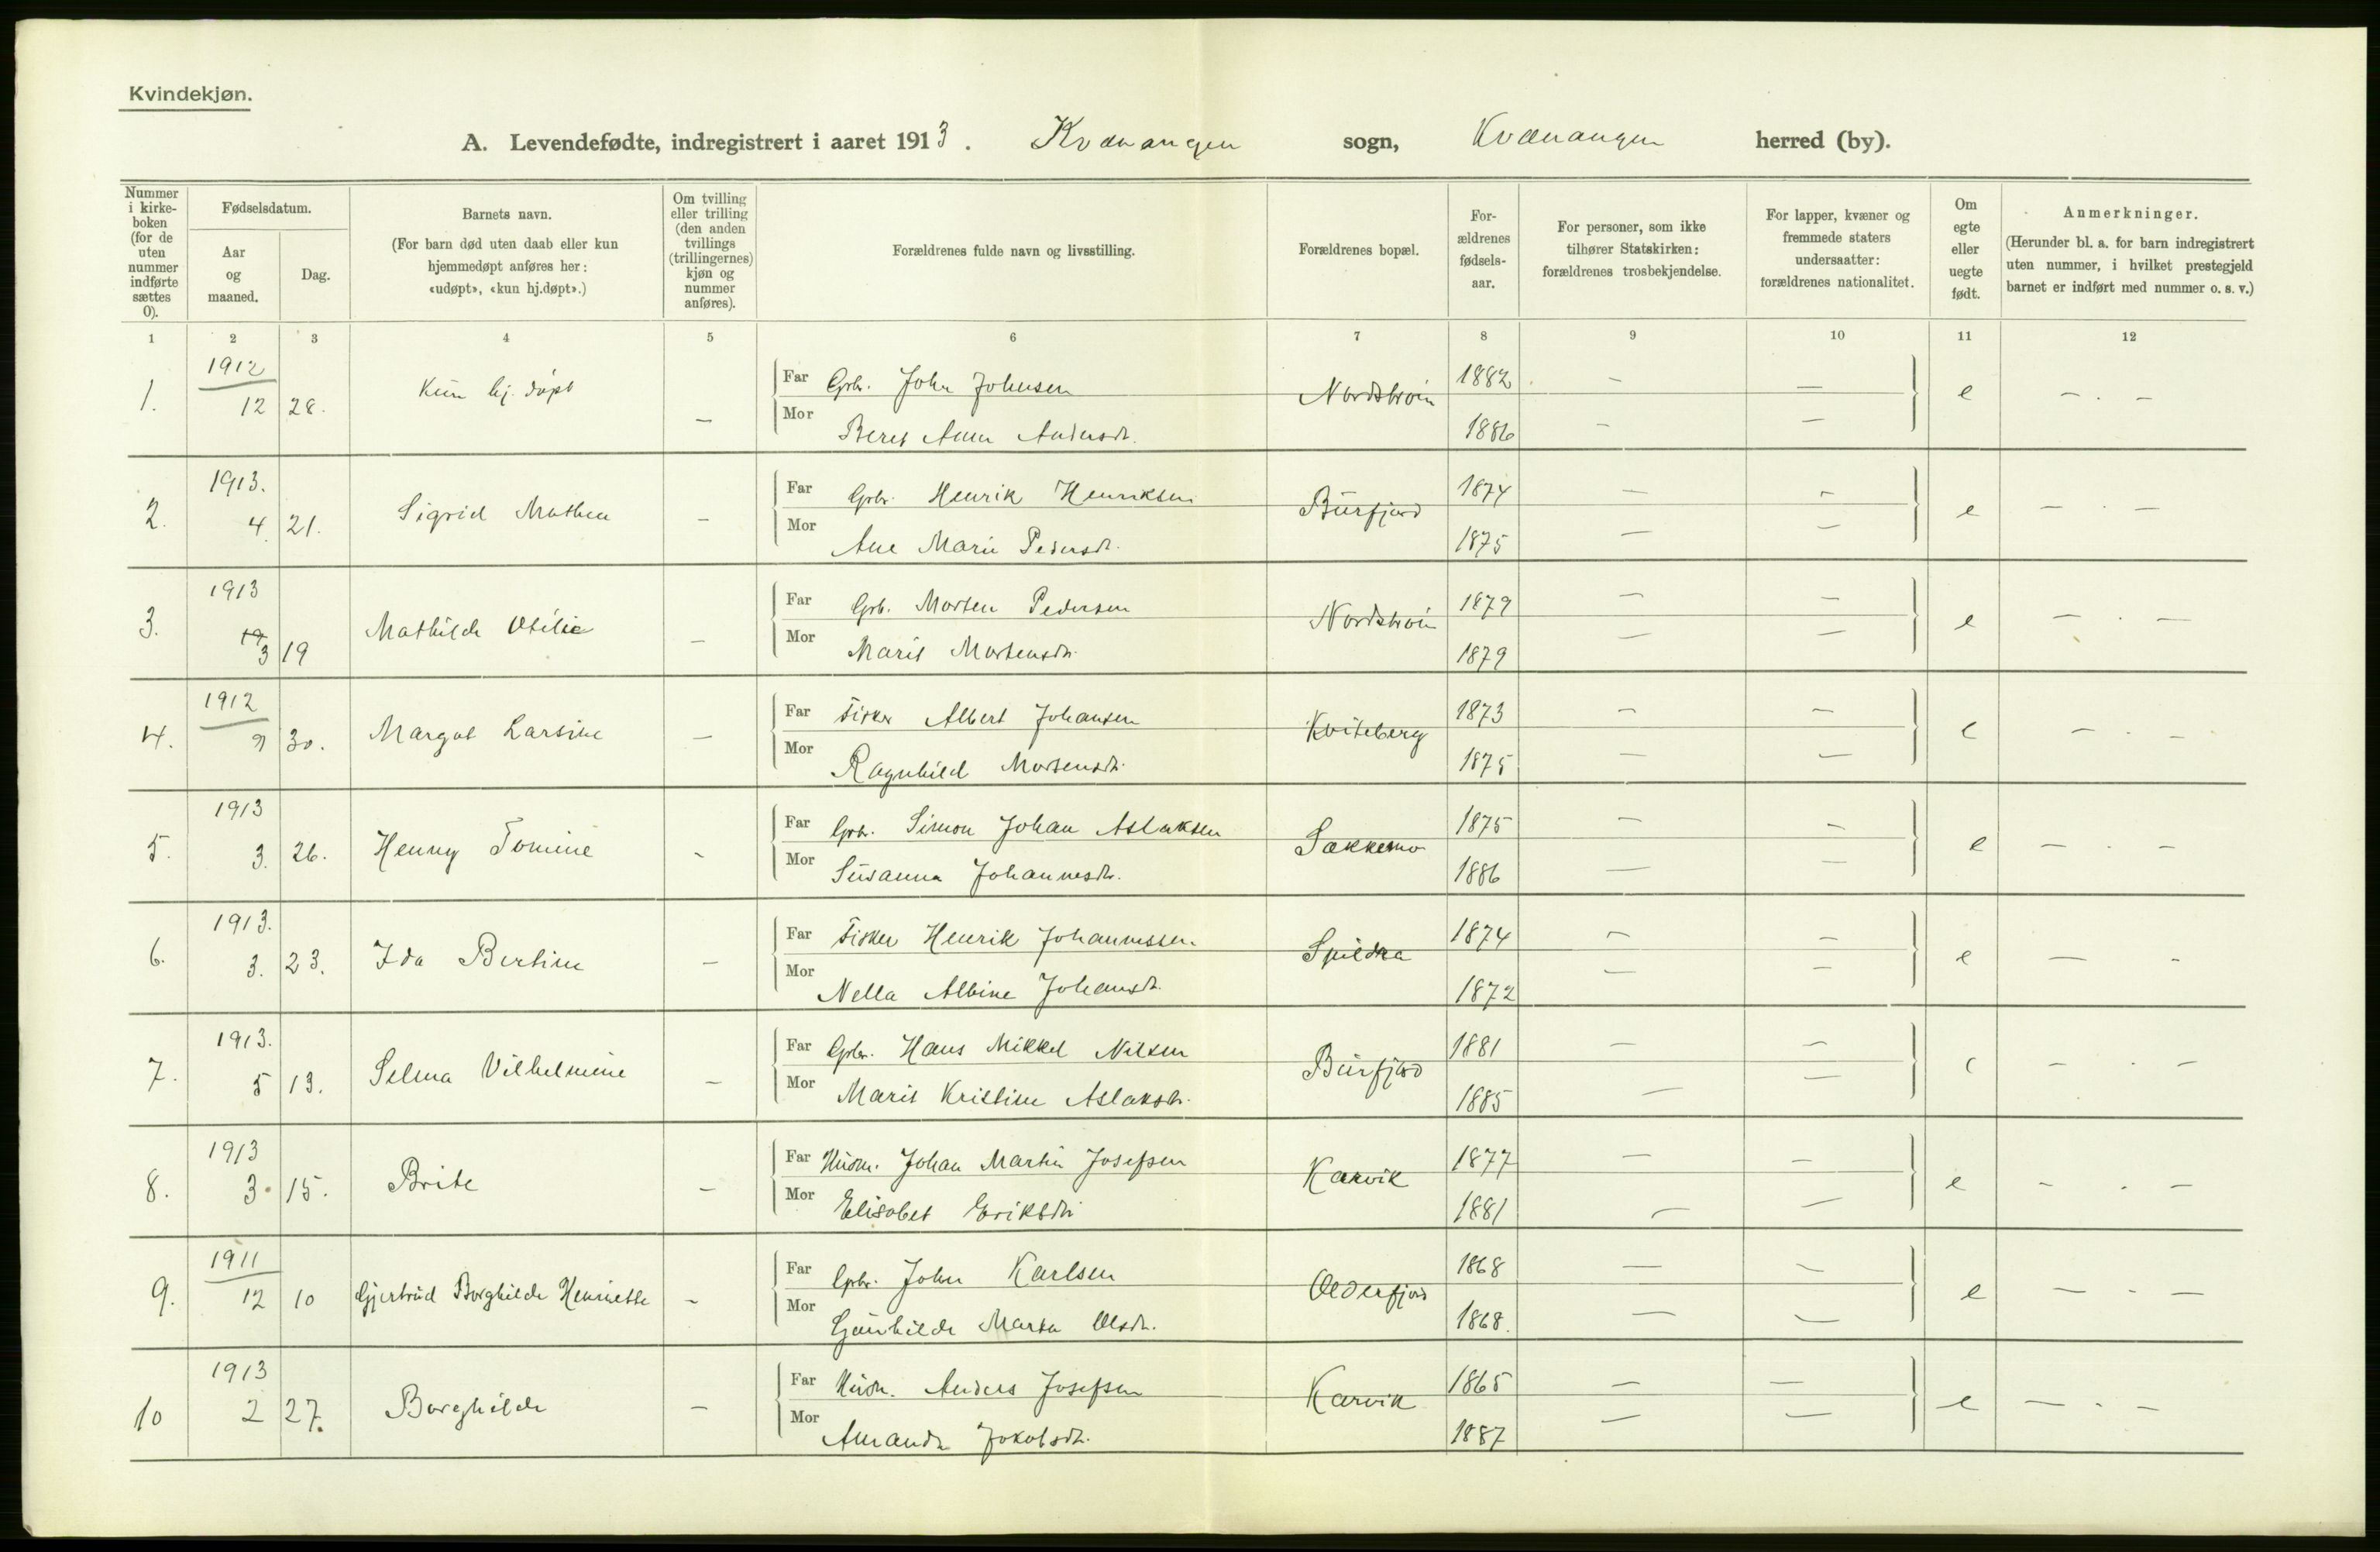 Kvindekjøn.
A. Levendefødte, indregistrert i aaret 1913. Kvænangen sogn, Kvænangen herred (by).
Nummer i kirke-boken (for de uten nummer indførte sættes 0).
Fødselsdatum.
Aar og maaned.
Dag.
Barnets navn.
(For barn død uten daab eller kun hjemmedøpt anføres her: «udøpt», «kun hj.døpt».)
Om tvilling eller trilling (den anden tvillings (trillingernes) kjøn og nummer anføres).
Forældrenes fulde navn og livsstilling.
Forældrenes bopæl.
For-ældrenes fødsels-aar.
For personer, som ikke tilhører Statskirken: forældrenes trosbekjendelse.
For lapper, kvæner og fremmede staters undersaatter: forældrenes nationalitet.
Om egte eller uegte født.
Anmerkninger.
(Herunder bl. a. for barn indregistrert uten nummer, i hvilket prestegjeld barnet er indført med nummer o. s. v.)
1 2 3 4 5 6 7 8 9 10 11 12
1. 1912 12 28. Kun hj. døpt — Far Grbr. John Johnsen Nordstrøm 1882 — — e — . —
Mor Beret Anna Andersdr. 1886 — —
2. 1913. 4. 21. Sigrid Mathea — Far Grbr. Henrik Henriksen Burfjord 1874 — — e — . —
Mor Ane Marie Pedersdr. 1875 — —
3. 1913 3 19 Mathilde Otilie — Far Grb. Morten Pedersen Nordstrøm 1879 — — e — . —
Mor Marit Mortensdr. 1879 — —
4. 1912 9 30. Margot Larsine — Far Fisker Albert Johansen Kviteberg 1873 — — e — . —
Mor Ragnhild Mortensdr. 1875 — —
5. 1913 3. 26. Henny Tomine — Far Grbr. Simon Johan Aslaksen Sækkemo 1875 — — e — . —
Mor Susanna Johannesdr. 1886 — —
6. 1913. 3. 23. Ida Bertine — Far Fisker Henrik Johannessen Spildra 1874 — — e — -
Mor Nella Albine Johansdr. 1872 — —
7. 1913. 5 13. Selma Vilhelmine — Far Grbr. Hans Mikkel Nilsen Burfjord 1881 — — e — . —
Mor Marit Kristine Aslaksdr. 1885 — —
8. 1913 3. 15. Brite — Far Husm. Johan Martin Josefsen Karvik 1877 — — e — . —
Mor Elisabet Eriksdr. 1881 — —
9. 1911 12 10 Gjertrud Borghilde Henriette — Far Grbr. John Karlsen Olderfjord 1868 — — e — - —
Mor Gunhilde Marka Olsdr. 1868. — —
10 1913 2 27. Borghilde — Far Husm. Anders Josefsen Karvik 1865 — — e — . —
Mor Amanda Jakobsdr. 1887 — —